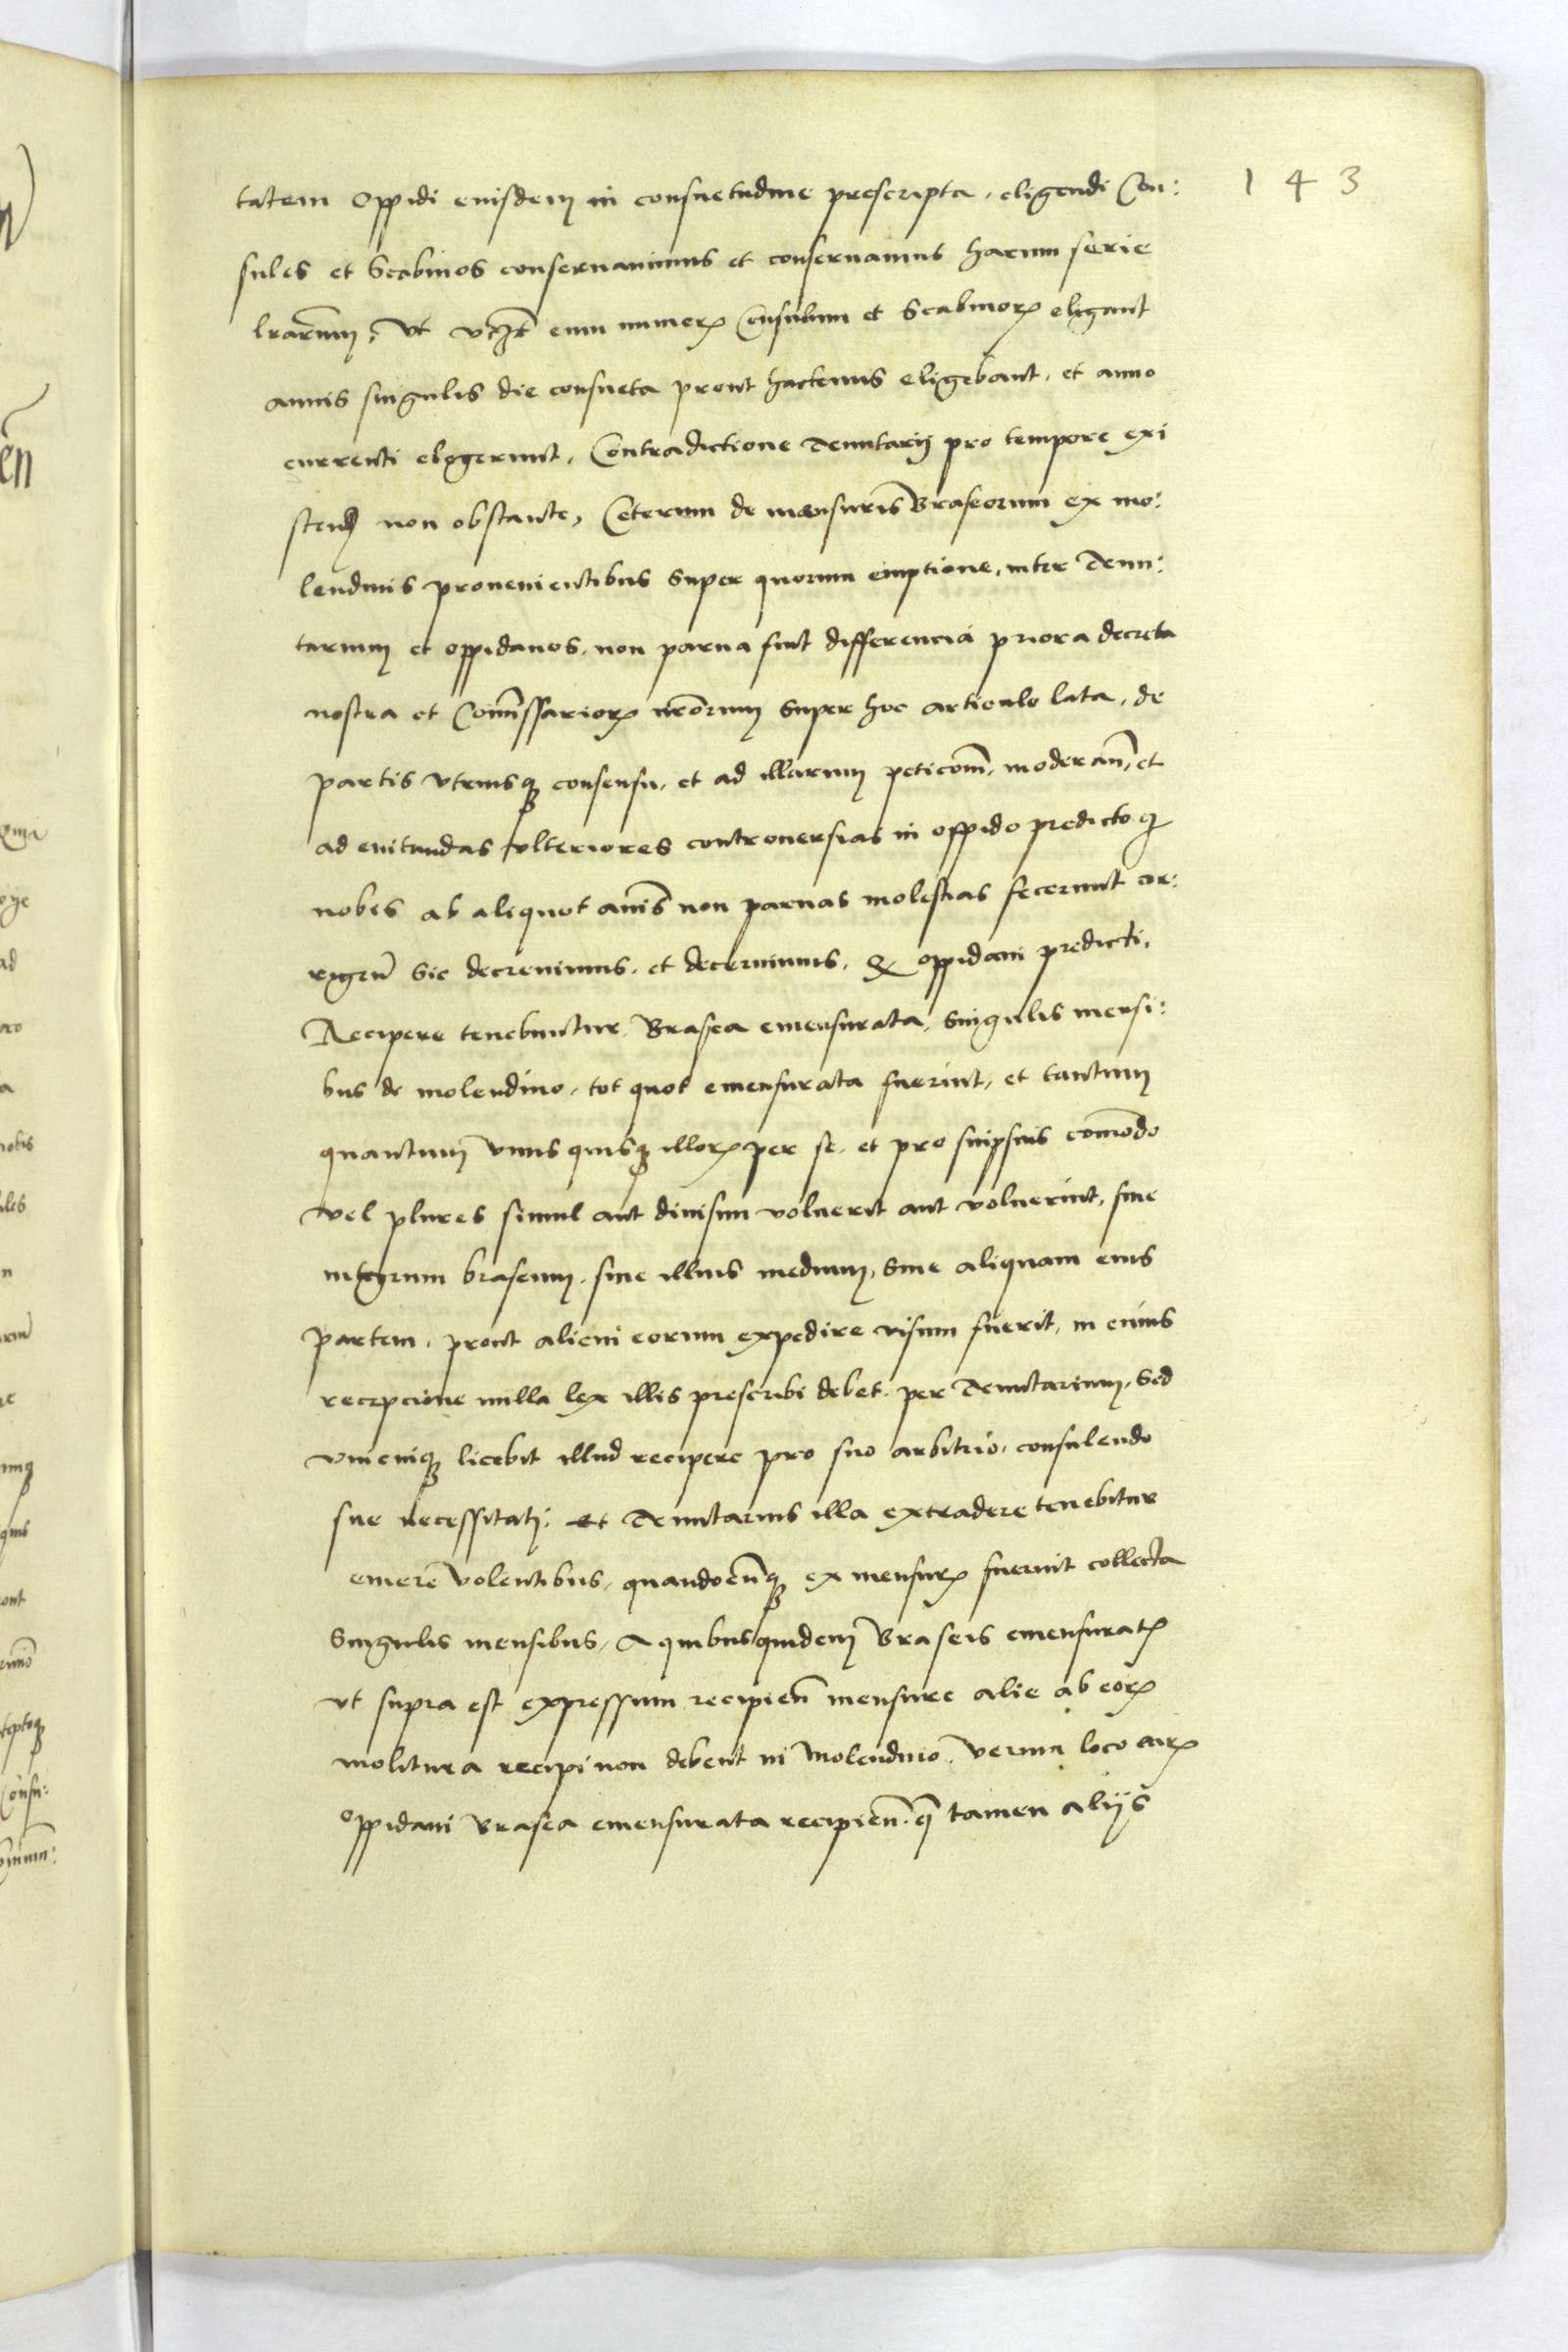 143
tatem Oppidi euisdem in consuetudine prescripta, eligendi Con:
sules et Scabinos conservauimus et conseruamus harum serie
lrarum, Vt vcz eum numerꝝ Consulum et Scabinorꝝ eligant
annis singulis die consueta prout hactenus eligebant, et anno
currenti elegerunt, Contradictione Tenutarij pro tempore exi
sten̄ non obstante, Ceterum de mensuris Braseorum ex mo:
lendinis prouenientibus super quorum emptione, inter Tenu:
tarium et oppidanos, non parua fuit differencia priora decreta
nostra et Com̄issariorꝝ nrōrum super hoc articulo lata, de
partis vtriusqꝫ consensu, et ad illarum peticom̄, moderan̄, et
ad euitandas vlteriores controuersias in oppido predicto q
nobis ab aliquot annis non paruas molestias fecerunt cor:
rigen̄ Sic decreuimus, et decernimus, Qꝫ oppidani predicti,
Recipere tenebuntur Brasea emensurata, singulis mensi:
bus de molendino, tot quot emensurata fuerint, et tantum
quantum vnus quisqꝫ illorꝝ per se, et pro suipsius com̄odo
vel plures simul aut diuisim voluerit aut voluerint, siue
integrum braseum, siue illius medium, siue aliquam eius
partem, prout alicui eorum expedire visum fuerit, in cuius
recepcione nulla lex illis prescribi debet per Tenutarium, Sed
vnicuiqꝫ licebit illud recipere pro suo arbitrio, consulendo
sue necessitati: et Tenutarius illa extradere tenebitur
emere volentibus, quandocun̄qꝫ ex mensurꝝ fuerint collecta
Singulis mensibus, A quibus quidem Braseis emensuratꝝ
vt supra est expressum recipien̄ mensure alie ab eorꝝ
molitura recipi non debent in Molendino, verum loco earꝝ
oppidani Brasea emensurata recipien̄, q̄ tamen alijs